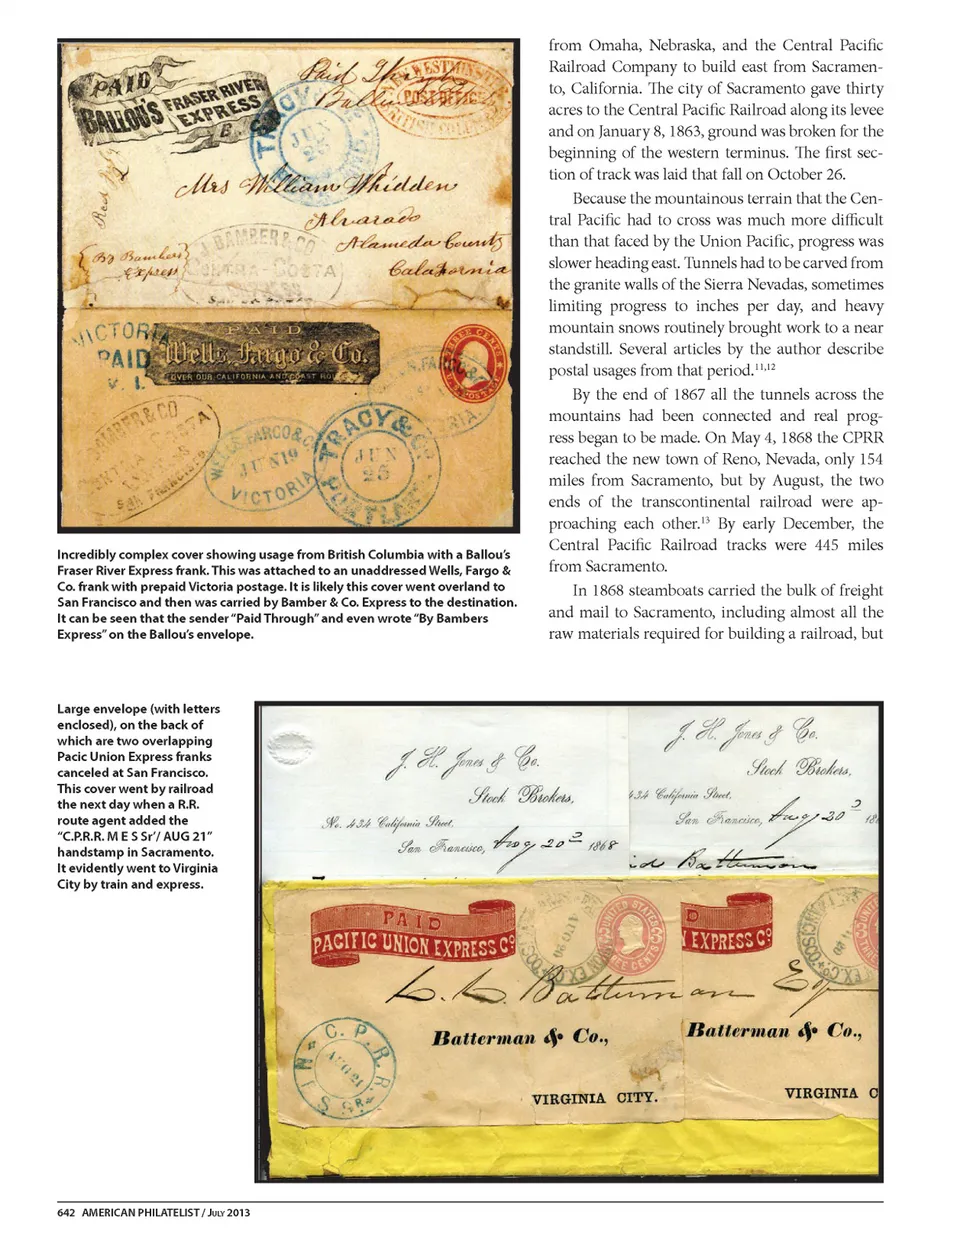 PAID
BALLOU'S FRASER RIVER
EXPRESS
Paid Through
Ballou
WESTMINSTER
POST OFFICE
BRITISH COLUMBIA
TRACY & CO
JUN
25
Mrs William Whidden
Alvarado
Alameda County
California
By Bambers
Express
J BAMBER & CO
CONTRA-COSTA
VICTORIA
PAID
V. I.
PAID
Wells, Fargo & Co.
OVER OUR CALIFORNIA AND COAST ROUTES
THREE CENTS
BAMBER & CO
CONTRA COSTA
SAN FRANCISCO
WELLS, FARGO & CO
JUN 19
VICTORIA
TRACY & CO
JUN
25
PORTLAND
Incredibly complex cover showing usage from British Columbia with a Ballou's
Fraser River Express frank. This was attached to an unaddressed Wells, Fargo &
Co. frank with prepaid Victoria postage. It is likely this cover went overland to
San Francisco and then was carried by Bamber & Co. Express to the destination.
It can be seen that the sender "Paid Through" and even wrote "By Bambers
Express" on the Ballou's envelope.
from Omaha, Nebraska, and the Central Pacific
Railroad Company to build east from Sacramen-
to, California. The city of Sacramento gave thirty
acres to the Central Pacific Railroad along its levee
and on January 8, 1863, ground was broken for the
beginning of the western terminus. The first sec-
tion of track was laid that fall on October 26.
Because the mountainous terrain that the Cen-
tral Pacific had to cross was much more difficult
than that faced by the Union Pacific, progress was
slower heading east. Tunnels had to be carved from
the granite walls of the Sierra Nevadas, sometimes
limiting progress to inches per day, and heavy
mountain snows routinely brought work to a near
standstill. Several articles by the author describe
postal usages from that period.11,12
By the end of 1867 all the tunnels across the
mountains had been connected and real prog-
ress began to be made. On May 4, 1868 the CPRR
reached the new town of Reno, Nevada, only 154
miles from Sacramento, but by August, the two
ends of the transcontinental railroad were ap-
proaching each other.13 By early December, the
Central Pacific Railroad tracks were 445 miles
from Sacramento.
In 1868 steamboats carried the bulk of freight
and mail to Sacramento, including almost all the
raw materials required for building a railroad, but
Large envelope (with letters
enclosed), on the back of
which are two overlapping
Pacic Union Express franks
canceled at San Francisco.
This cover went by railroad
the next day when a R.R.
route agent added the
"C.P.R.R. M E S Sr'/ AUG 21"
handstamp in Sacramento.
It evidently went to Virginia
City by train and express.
J. H. Jones & Co.
Stock Brokers,
No. 434 California Street,
San Francisco, Aug 20th 1868
J. H. Jones & Co.
Stock Brokers,
434 California Street,
San Francisco, Aug 20 186
Batterman
PAID
PACIFIC UNION EXPRESS Co
UNITED STATES
THREE CENTS
Batterman Esq
Batterman & Co.,
VIRGINIA CITY.
C. P. R. R.
AUG 21
EXPRESS Co
Batterman & Co.,
VIRGINIA C
642 AMERICAN PHILATELIST / JULY 2013